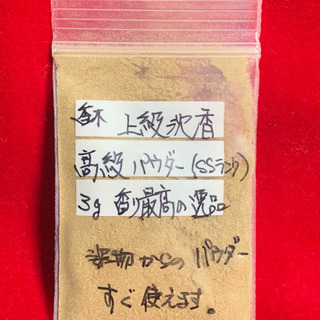 香木 上級沈香
高級パウダー(SSランク)
3g 香り最高の逸品
からのパウダー
すぐ使えます。